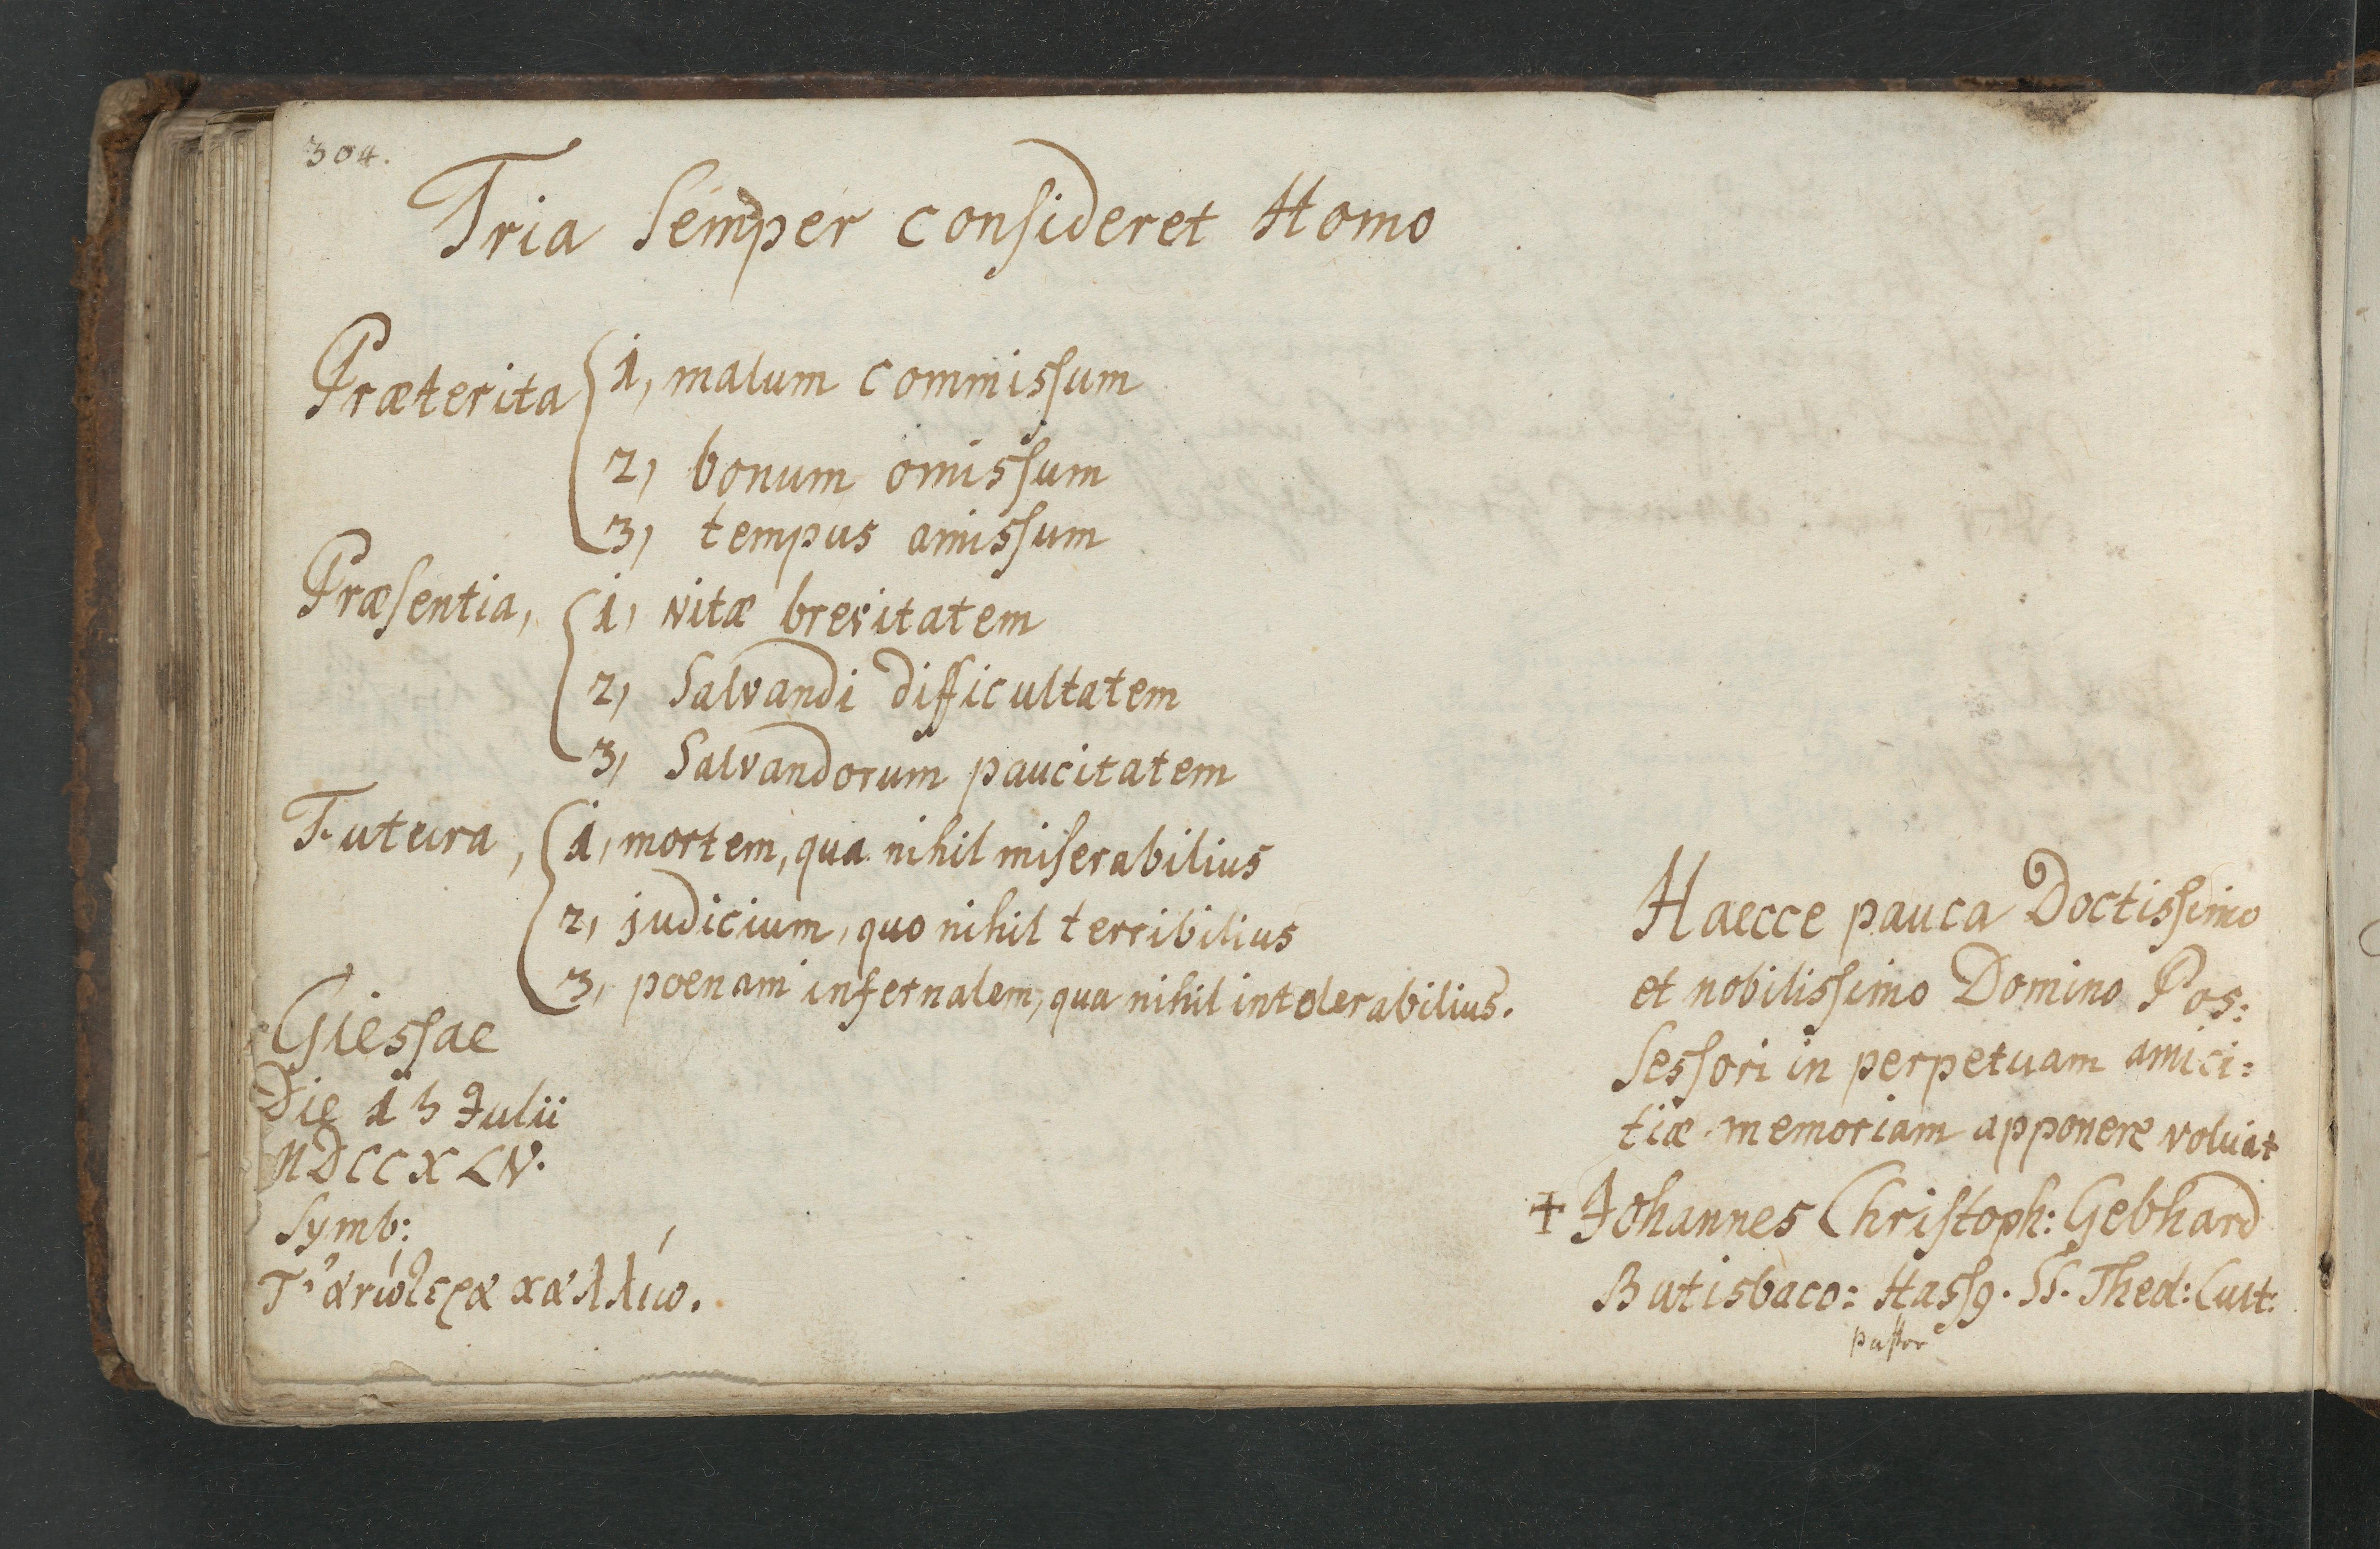 304.
Tria Semper consideret Homo
Præterita { 1, malum commissum
2, bonum omissum
3, tempus amissum
Præsentia, { 1, vitæ brevitatem
2, Salvandi difficultatem
3, Salvandorum paucitatem
Futura, { 1, mortem, qua nihil miserabilius
2, judicium, quo nihil terribilius
3, poenam infernalem, qua nihil intolerabilius.
Giessae
Die 13 Julii
MDCCXLV.
Symb:
Haecce pauca Doctissimo
et nobilissimo Domino Pos:
sessori in perpetuam amici:
tiæ memoriam apponere voluit
+ Johannes Christoph: Gebhard
Butisbaco: Hass9. SS. Theol: Cult:
pastor